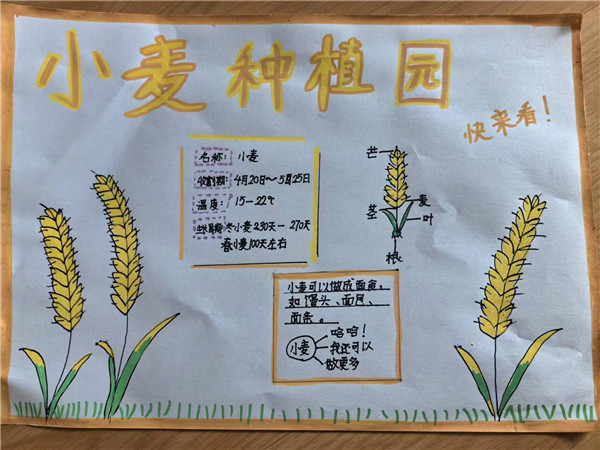 小麦种植园
快来看！
名称：小麦
收割期：4月20日～5月25日
温度：15—22℃
生长期：冬小麦230天—270天
春小麦100天左右
芒
麦
茎
叶
根
小麦可以做成面食，
如馒头、面包、
面条。
哈哈！
小麦
我还可以
做更多